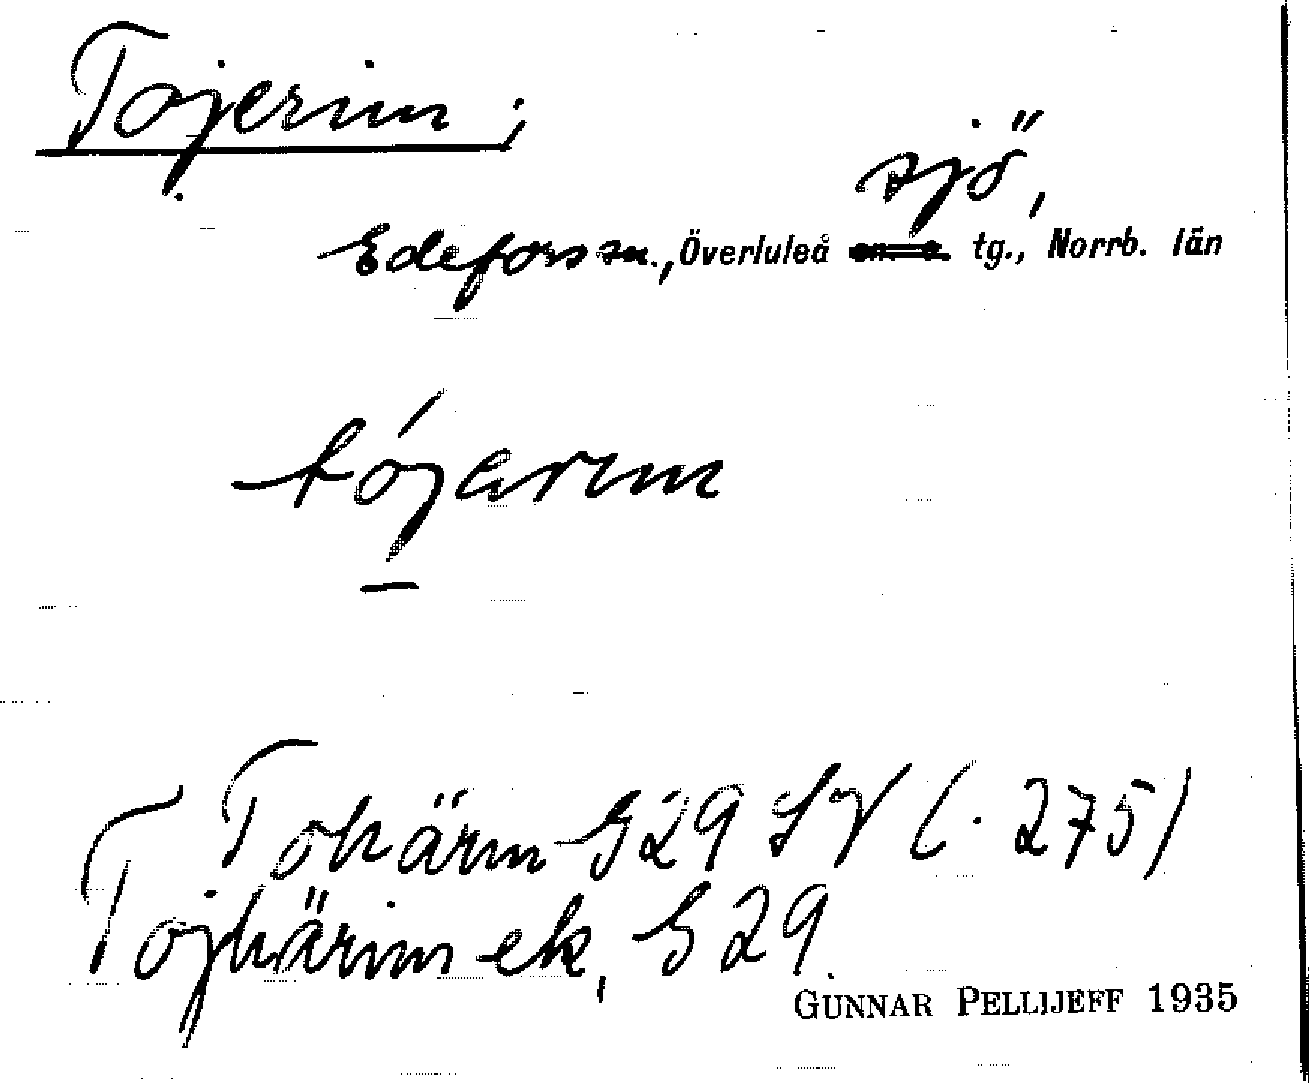 Tojerim;
sjö,
Edefors sn., Överluleå tg., Norrb. län
tójarım
Tohärm G29 SV (. 275)
Tojhärim ek, G29.
GUNNAR PELLIJEFF 1935